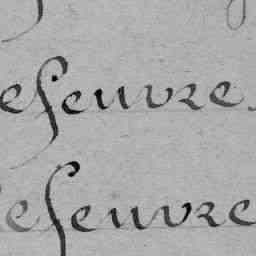 efeuvre
efeuvre